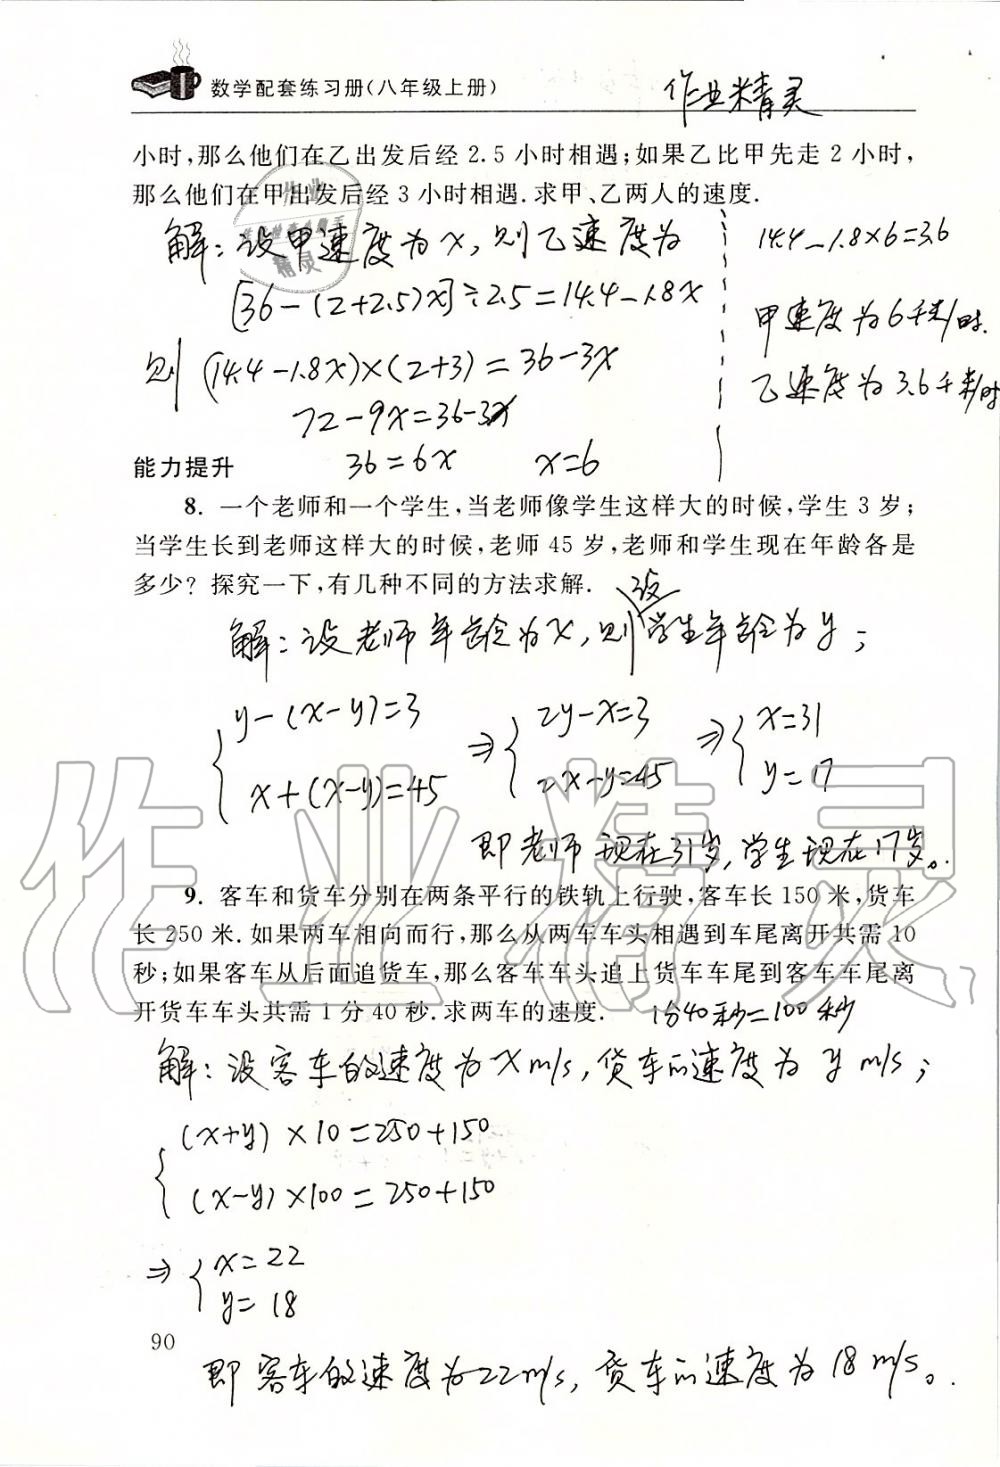 数学配套练习册(八年级上册)
作业精灵
小时,那么他们在乙出发后经 2.5 小时相遇;如果乙比甲先走 2 小时,
那么他们在甲出发后经 3 小时相遇.求甲、乙两人的速度.
解:设甲速度为x,则乙速度为
[36-(2+2.5)x]÷2.5=14.4-1.8x
则 (14.4-1.8x)×(2+3)=36-3x
72-9x=36-3x
36=6x x=6
14.4-1.8×6=3.6
甲速度为6千米/时.
乙速度为3.6千米/时
能力提升
8. 一个老师和一个学生,当老师像学生这样大的时候,学生 3 岁;
当学生长到老师这样大的时候,老师 45 岁,老师和学生现在年龄各是
多少? 探究一下,有几种不同的方法求解.
解:设老师年龄为x,则设学生年龄为y;
{y-(x-y)=3 ⇒ {2y-x=3 ⇒ {x=31
x+(x-y)=45 2x-y=45 y=17
即老师现在31岁,学生现在17岁。
9. 客车和货车分别在两条平行的铁轨上行驶,客车长 150 米,货车
长 250 米.如果两车相向而行,那么从两车车头相遇到车尾离开共需 10
秒;如果客车从后面追货车,那么客车车头追上货车车尾到客车车尾离
开货车车头共需 1 分 40 秒.求两车的速度. 1分40秒=100秒
解:设客车的速度为x m/s,货车的速度为 y m/s;
{(x+y)×10=250+150
(x-y)×100=250+150
⇒ {x=22
y=18
90
即客车的速度为22m/s,货车的速度为18m/s。
作业精灵